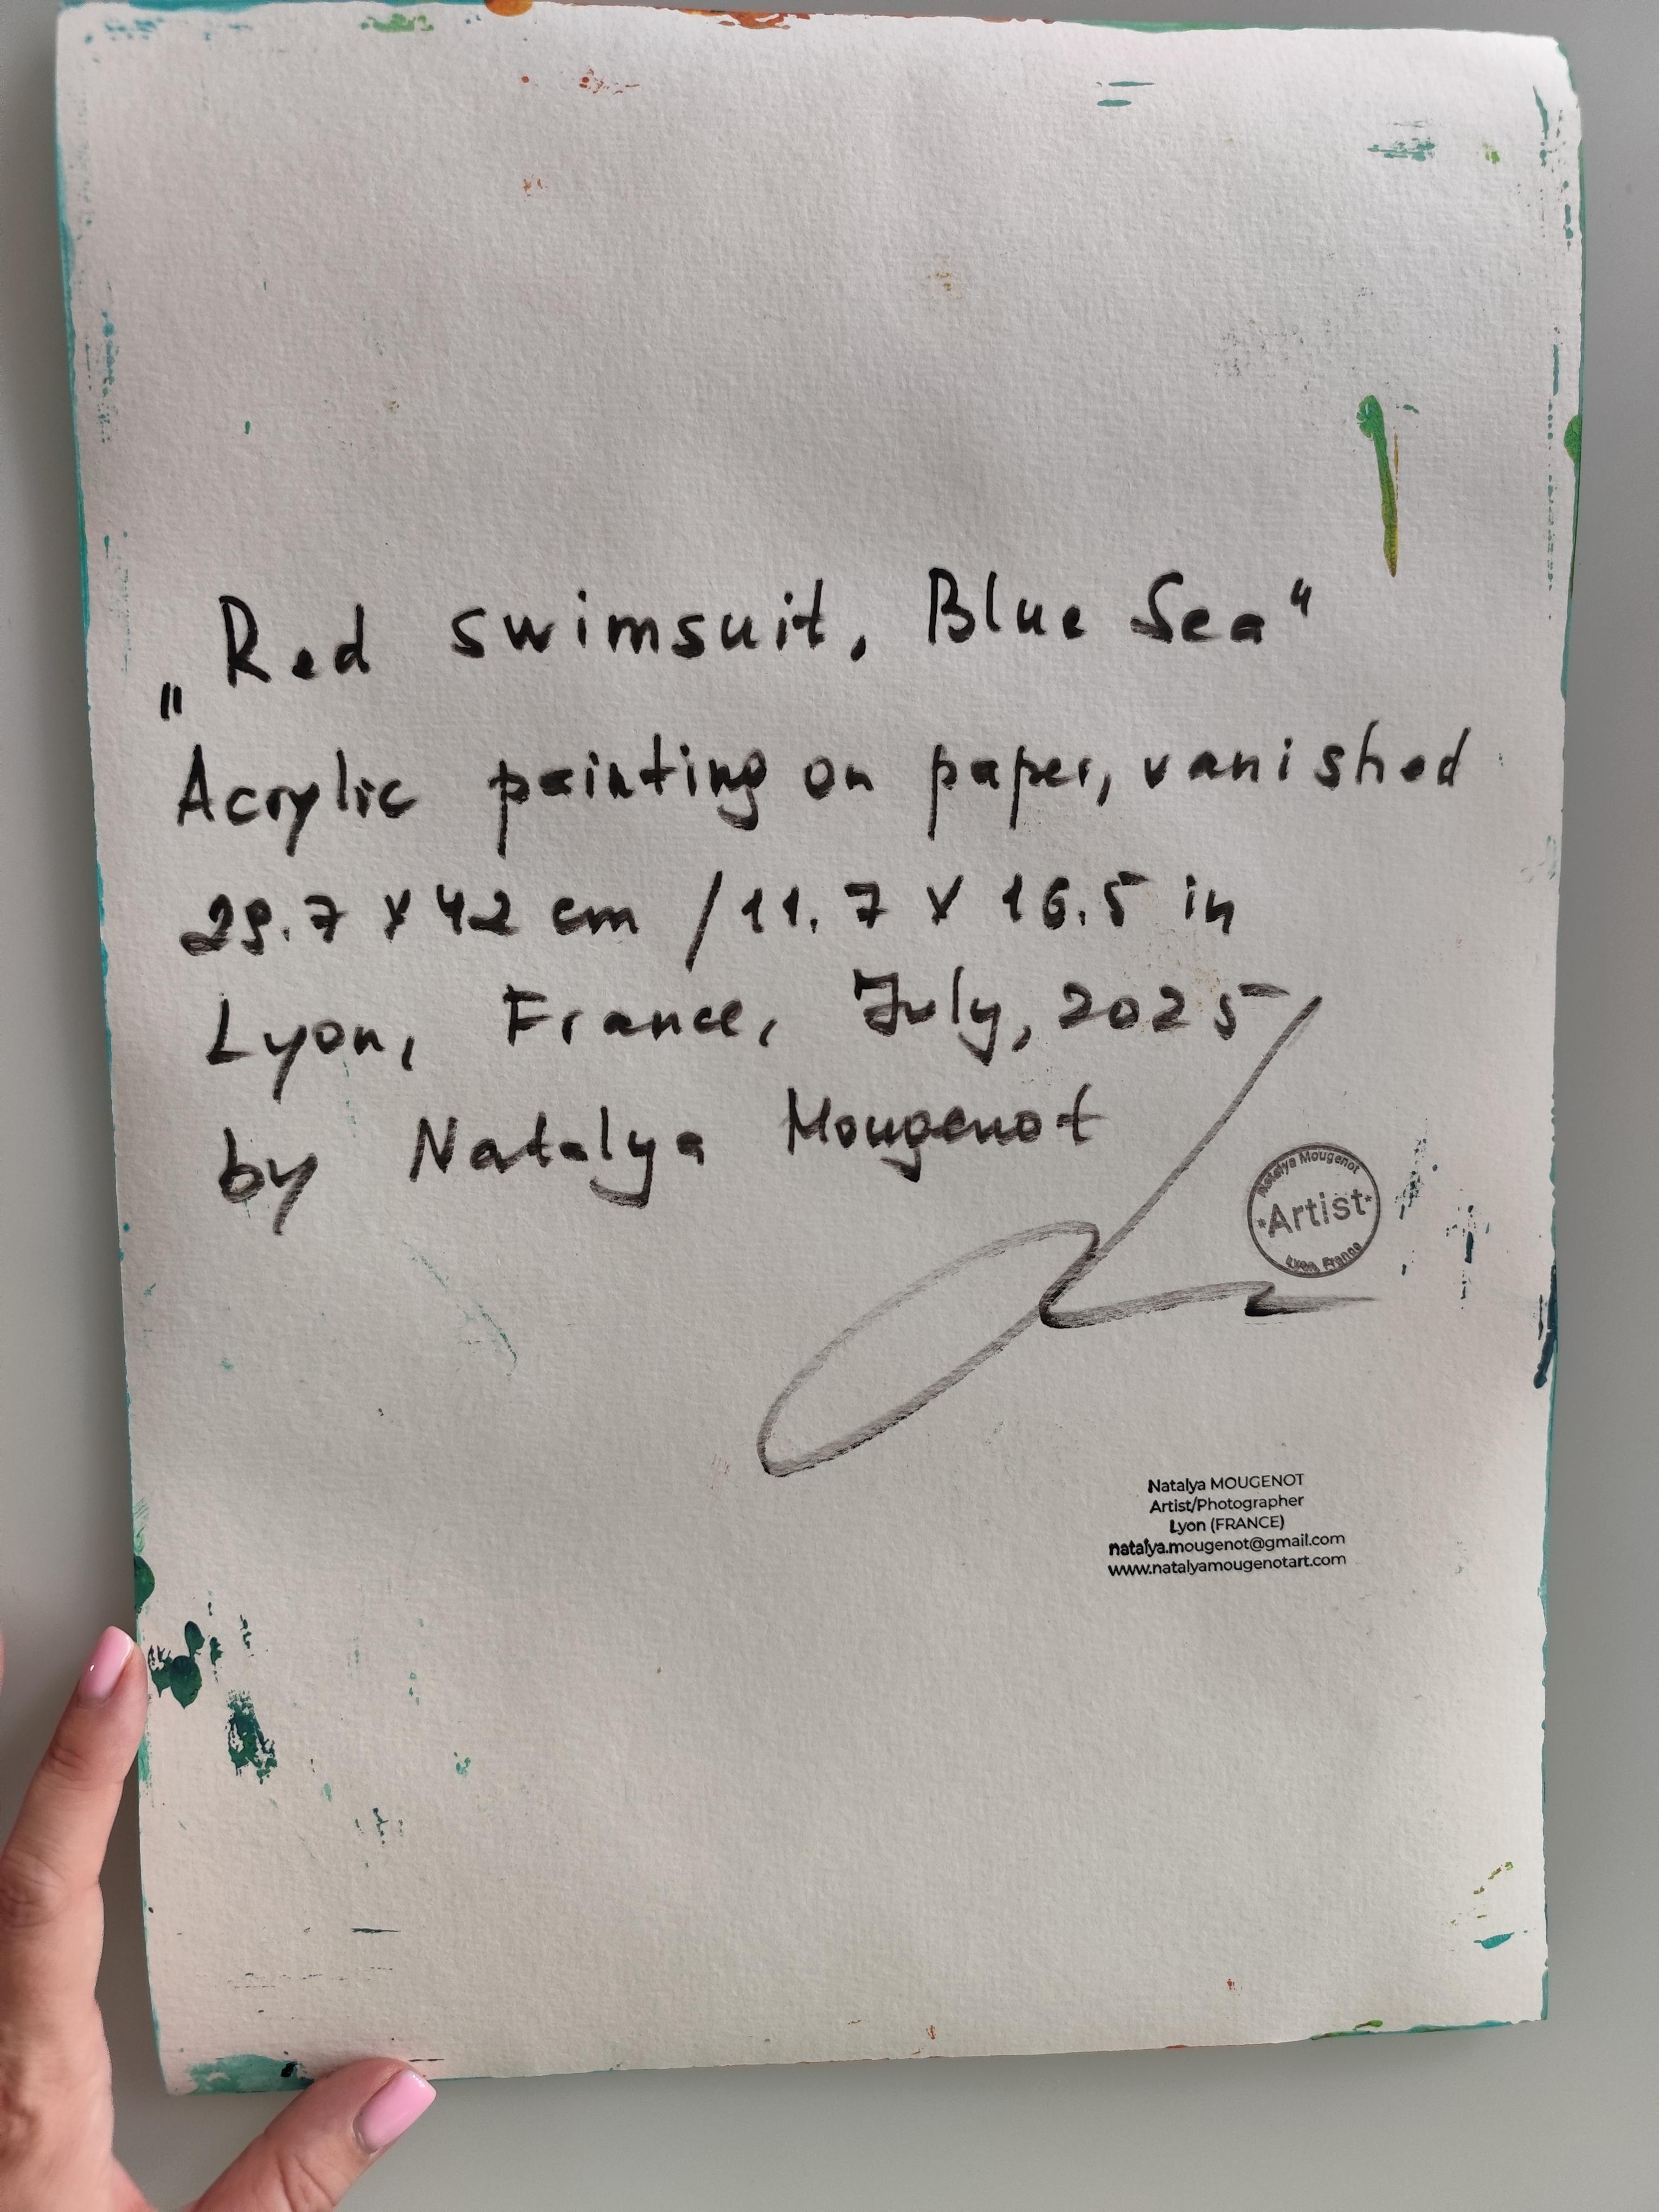 „Red swimsuit, Blue Sea“
Acrylic painting on paper, vanished
29.7 x 42 cm / 11.7 x 16.5 in
Lyon, France, July, 2025
by Natalya Mougenot
Natalya Mougenot
*Artist*
Lyon, France
Natalya MOUGENOT
Artist/Photographer
Lyon (FRANCE)
natalya.mougenot@gmail.com
www.natalyamougenotart.com